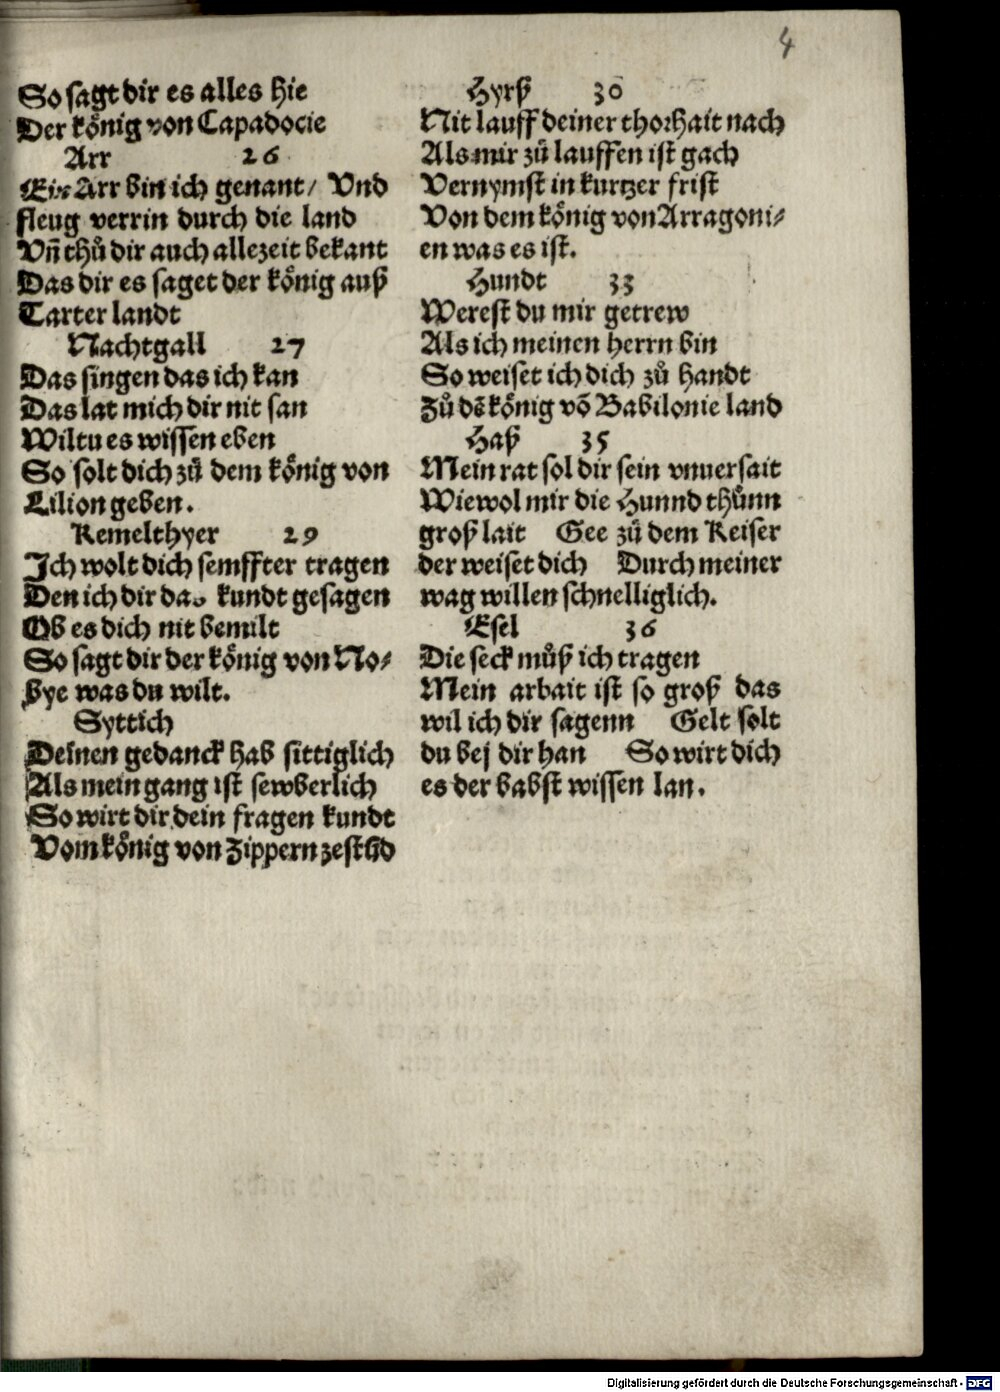 4
So sagt dir es alles hie
Der könig von Capadocie
Arr 26
Ein Arr bin ich genant/ Vnd
fleug verrin durch die land
Vñ thů dir auch allezeit bekant
Das dir es saget der könig auß
Tarter landt
Nachtgall 27
Das singen das ich kan
Das lat mich dir nit san
Wiltu es wissen eben
So solt dich zů dem könig von
Lilion geben.
Kemelthyer 29
Ich wolt dich semffter tragen
Den ich dir das kundt gesagen
Ob es dich nit bemilt
So sagt dir der könig von No⸗
bye was du wilt.
Syttich
Deinen gedanck hab sittiglich
Als mein gang ist sewberlich
So wirt dir dein fragen kundt
Vom könig von Zippern zestůd
Hyrß 30
Nit lauff deiner thorhait nach
Als mir zů lauffen ist gach
Vernymst in kurtzer frist
Von dem könig von Arragoni⸗
en was es ist.
Hundt 33
Werest du mir getrew
Als ich meinen herrn bin
So weiset ich dich zů handt
Zů dē könig vō Babilonie land
Haß 35
Mein rat sol dir sein vnuersait
Wiewol mir die Hunnd thůnn
groß lait Gee zů dem Keiser
der weiset dich Durch meiner
wag willen schnelliglich.
Esel 36
Die seck můß ich tragen
Mein arbait ist so groß das
wil ich dir sagenn Gelt solt
du bej dir han So wirt dich
es der babst wissen lan.
Digitalisierung gefördert durch die Deutsche Forschungsgemeinschaft - DFG